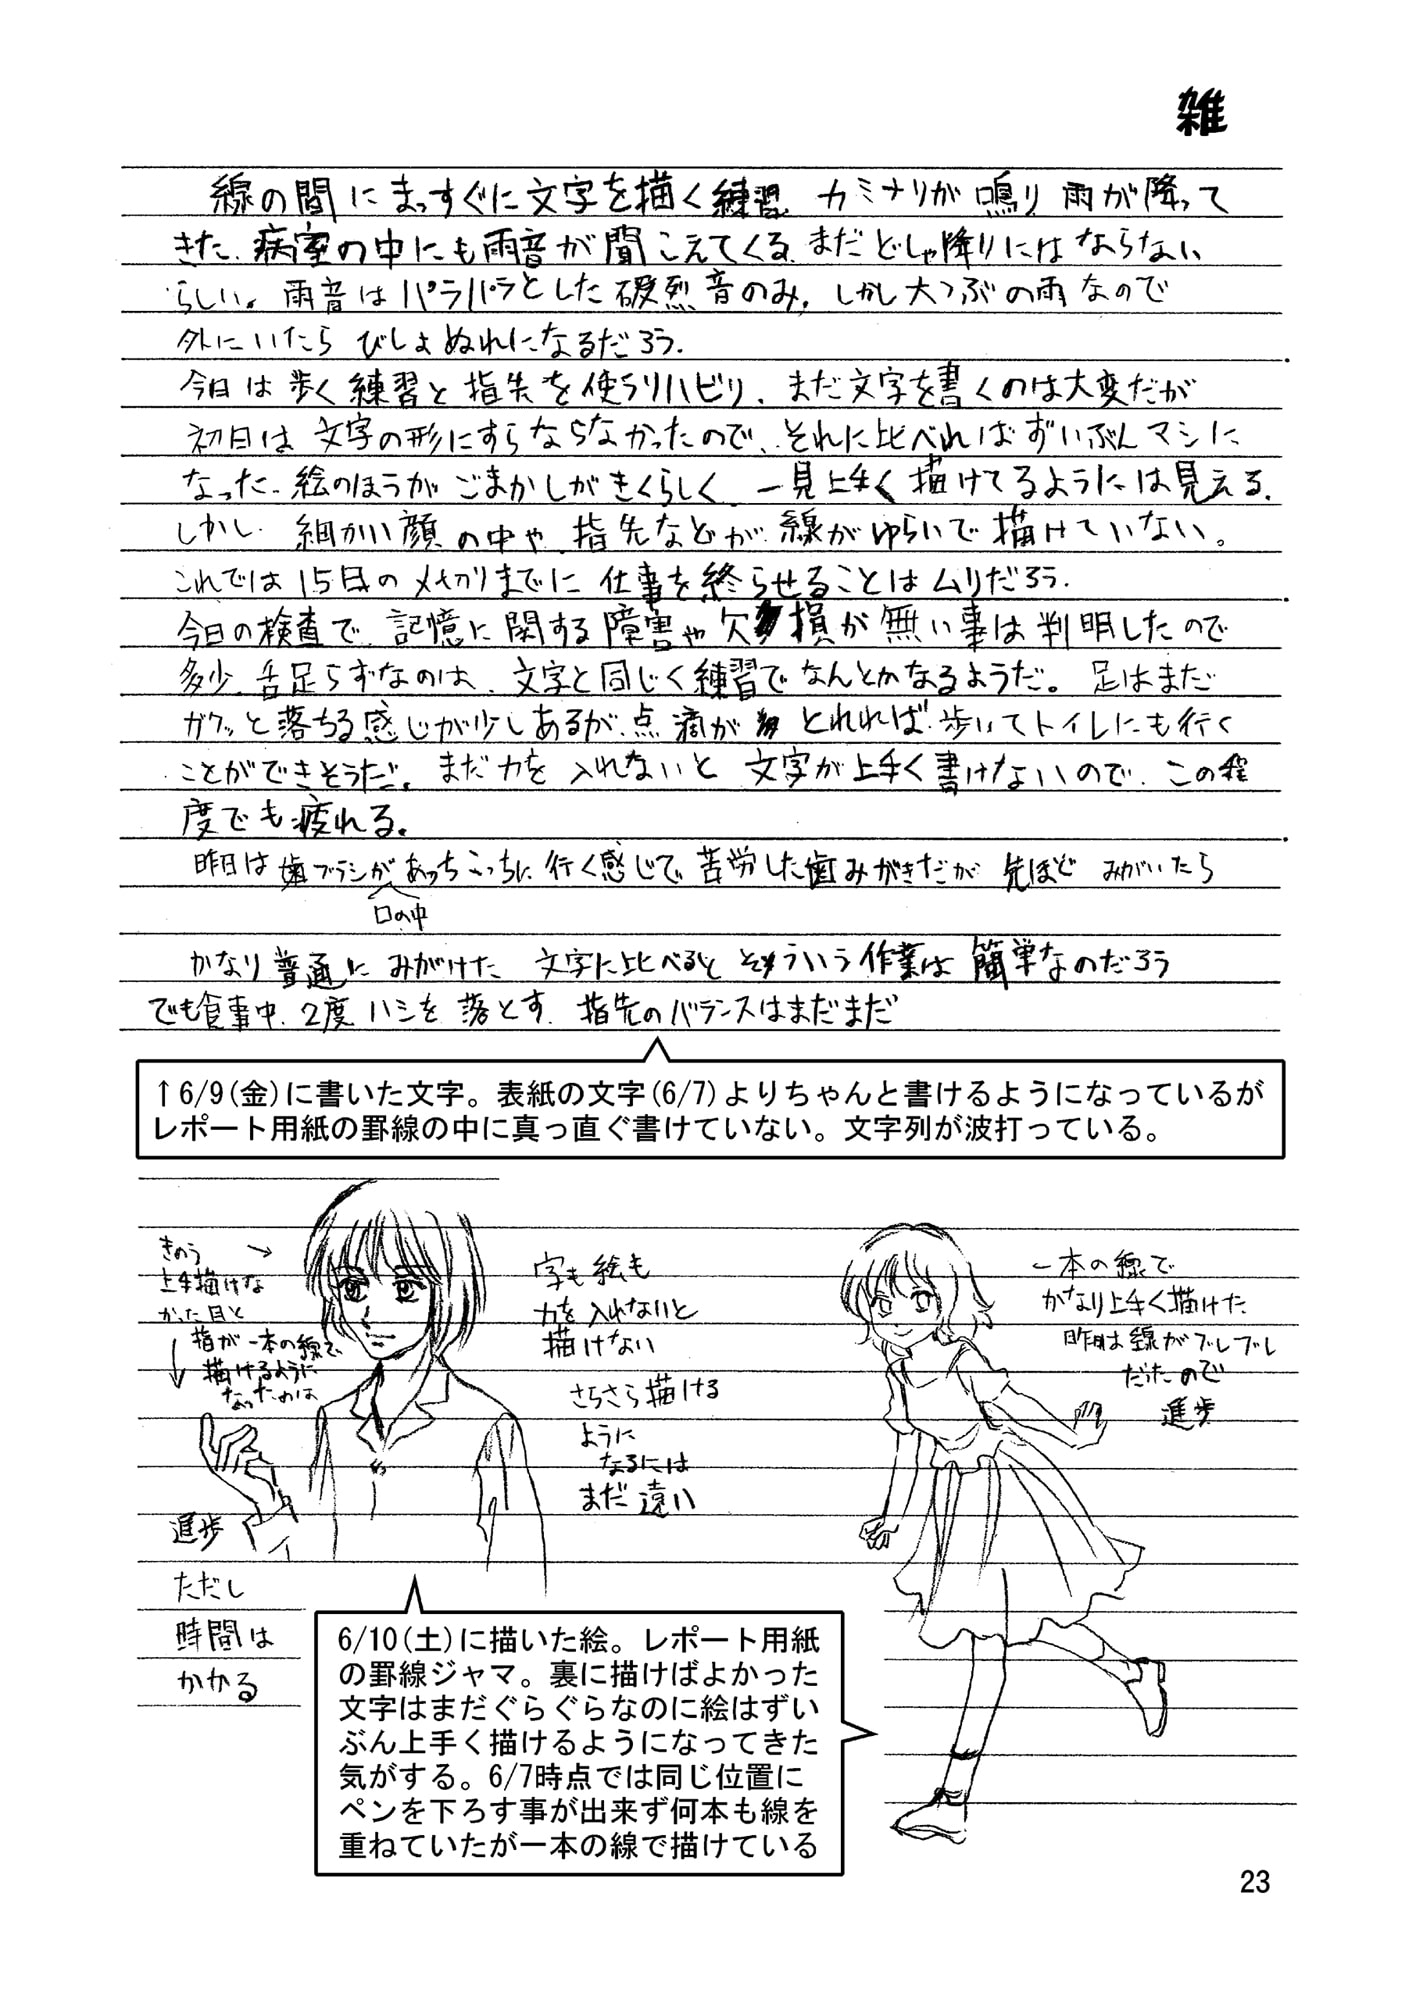 雑
線の間にまっすぐに文字を描く練習 カミナリが鳴り 雨が降って
きた、病室の中にも雨音が聞こえてくる、まだどしゃ降りにはならない
らしい。雨音はパラパラとした破烈音のみ、しかし大つぶの雨なので
外にいたら びしょぬれになるだろう、
今日は歩く練習と指先を使うリハビリ、まだ文字を書くのは大変だが
初日は文字の形にすらならなかったので、それに比べればずいぶんマシに
なった、絵のほうがごまかしがきくらしく、一見上手く描けてるようには見える、
しかし、細かい顔の中や、指先などが、線がゆらいで描けていない。
これでは15日の〆切りまでに仕事を終らせることはムリだろう、
今日の検査で、記憶に関する障害や欠損が無い事は判明したので
多少、舌足らずなのは、文字と同じく練習でなんとかなるようだ。足はまだ
ガクッと落ちる感じが少しあるが、点滴が とれれば、歩いてトイレにも行く
ことができそうだ。まだ力を入れないと文字が上手く書けないので、この程
度でも疲れる。
昨日は歯ブラシがあっちこっちに行く感じで苦労した歯みがきだが 先ほど みがいたら
口の中
かなり普通にみがけた 文字に比べると そういう作業は簡単なのだろう
でも食事中、2度ハシを落とす、指先のバランスはまだまだ
↑6/9(金)に書いた文字。表紙の文字(6/7)よりちゃんと書けるようになっているが
レポート用紙の罫線の中に真っ直ぐ書けていない。文字列が波打っている。
きのう →
上手描けな
かった目と
↓ 指が一本の線で
描けるように
なったのは
進歩
ただし
時間は
かかる
字も絵も
力を入れないと
描けない
さらさら描ける
ように
なるには
まだ遠い
一本の線で
かなり上手く描けた
昨日は線がブレブレ
だったので
進歩
6/10(土)に描いた絵。レポート用紙
の罫線ジャマ。裏に描けばよかった
文字はまだぐらぐらなのに絵はずい
ぶん上手く描けるようになってきた
気がする。6/7時点では同じ位置に
ペンを下ろす事が出来ず何本も線を
重ねていたが一本の線で描けている
23